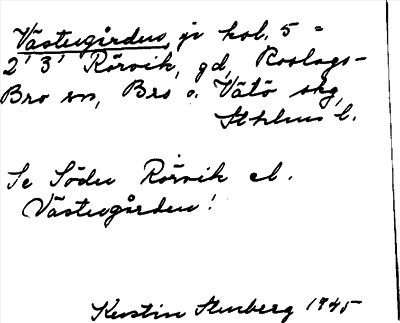 Västergården, je kol. 5 =
2' 3' Rörvik, gd, Roslags-
Bro sn, Bro o. Vätö skg,
Sthlms l.
Se Söder Rörvik el.
Västergården!
Kerstin Stenberg 1945